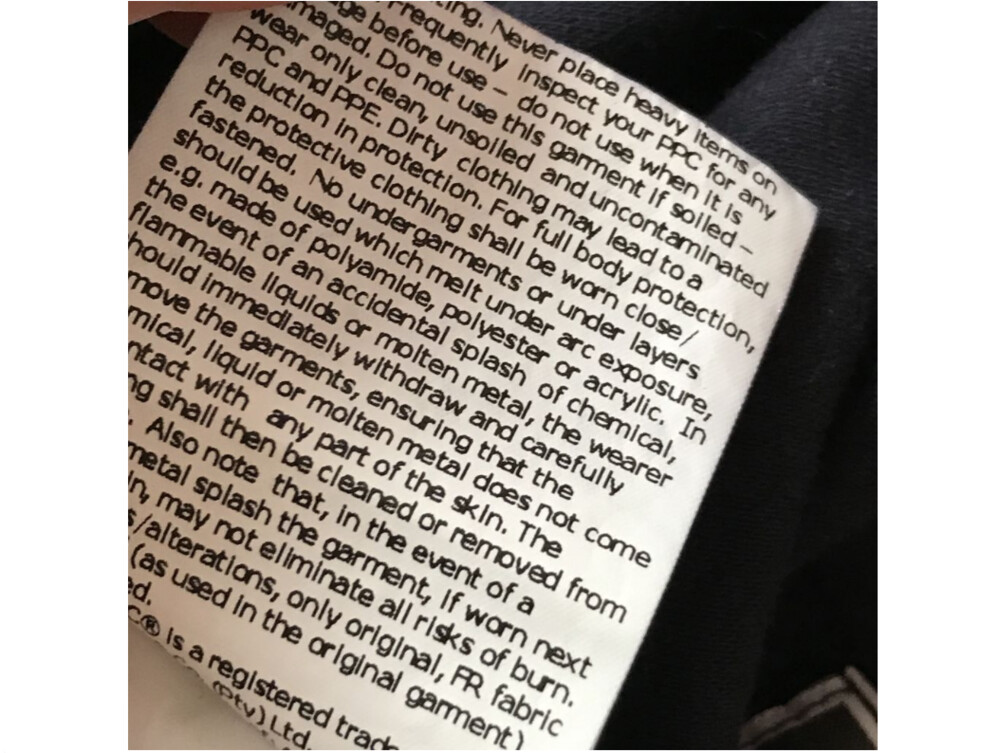 ting. Never place heavy items on
Frequently inspect your PPC for any
ge before use – do not use when it is
maged. Do not use this garment if soiled –
wear only clean, unsoiled and uncontaminated
PPC and PPE. Dirty clothing may lead to a
reduction in protection. For full body protection,
the protective clothing shall be worn close/
fastened. No undergarments or under layers
should be used which melt under arc exposure,
e.g. made of polyamide, polyester or acrylic. In
the event of an accidental splash of chemical,
flammable liquids or molten metal, the wearer
hould immediately withdraw and carefully
move the garments, ensuring that the
mical, liquid or molten metal does not come
ntact with any part of the skin. The
ng shall then be cleaned or removed from
. Also note that, in the event of a
metal splash the garment, if worn next
n, may not eliminate all risks of burn.
s/alterations, only original, FR fabric
(as used in the original garment)
ed.
C® is a registered trade
(Pty) Ltd.